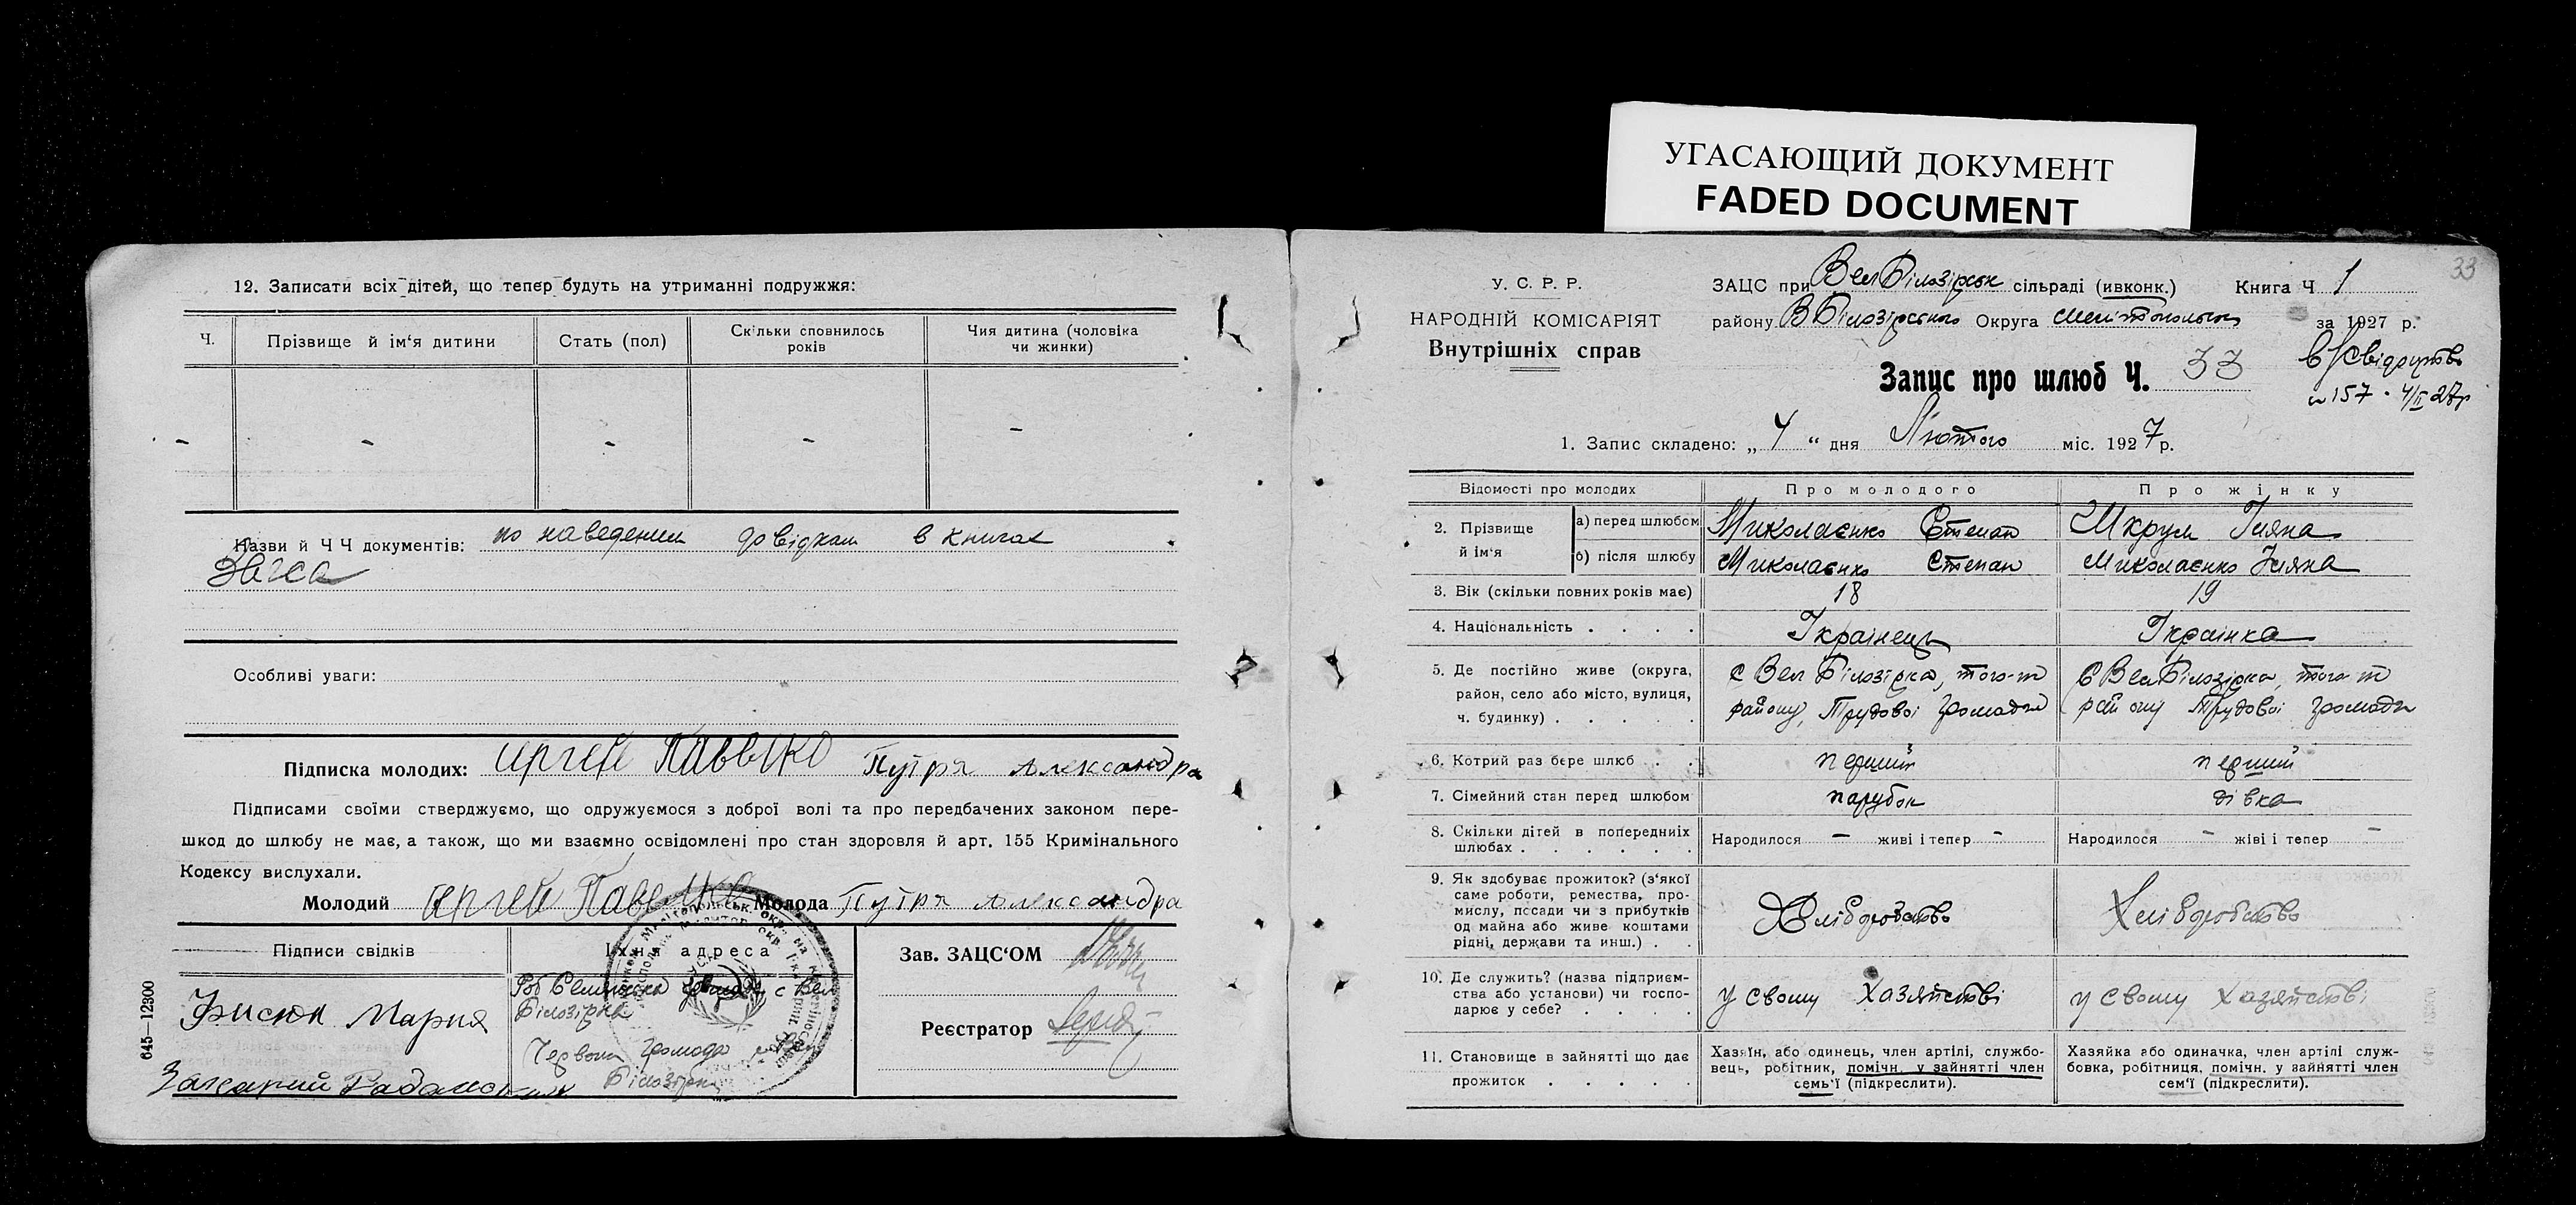 УГАСАЮЩИЙ ДОКУМЕНТ
FADED DOCUMENT
12. Записати всіх дітей, що тепер будуть на утриманні подружжя:
Ч.
Прізвище й ім‘я дитини
Стать (пол)
Скільки сповнилось років
Чия дитина (чоловіка чи жинки)
- - - - -
Назви й Ч Ч документів: по наведеним довідкам в книгах
Загса
Особливі уваги:
Підписка молодих: Сергей Павелко Путря Александра
Підписами своїми стверджуємо, що одружуємося з доброї волі та про передбачених законом пере-
шкод до шлюбу не має, а також, що ми взаємно освідомлені про стан здоровля й арт. 155 Кримінального
Кодексу вислухали.
Молодий Сергей Павелко Молода Путря Александра
Підписи свідків
Їхня адреса
Зав. ЗАЦС‘ОМ
Мария
с Вел
Білозірка
Реєстратор
Червона громада
Білозірка
Захарий
645—12300
33
У. С. Р. Р.
НАРОДНІЙ КОМІСАРІЯТ
Внутрішніх справ
ЗАЦС при Вел Білозірськ сільраді (ивконк.) Книга Ч 1
району В Білозірського Округа Мелітопольськ за 1927 р.
в/свідоцтво
№157 · 4/II 27р
Запис про шлюб Ч. 33
1. Запис складено: „ 4 “ дня Лютого міс. 1927 р.
Відомості про молодих
Про молодого
Про жінку
2. Прізвище й ім‘я
а) перед шлюбом Миколаєнко Степан Шкрум Іляна
б) після шлюбу Миколаєнко Степан Миколаєнко Іляна
3. Вік (скільки повних років має) 18 19
4. Національність . . . . Українець Українка
5. Де постійно живе (округа, район, село або місто, вулиця, ч. будинку) . . . . .
с Вел Білозірка, того-ж
району, Трудової громади
с Вел Білозірка, того-ж
району Трудової громади
6. Котрий раз бере шлюб . . перший перший
7. Сімейний стан перед шлюбом парубок дівка
8. Скільки дітей в попередніх шлюбах . . . . . . .
Народилося - живі і тепер -
Народилося - жіві і тепер -
9. Як здобуває прожиток? (з‘якої саме роботи, ремества, про-мислу, посади чи з прибутків од майна або живе коштами рідні, держави та инш.) . .
Хліборобство
Хліборобство
10. Де служить? (назва підприєм-ства або установи) чи госпо-дарює у себе? . . . .
у свому хазяйстві
у свому хазяйстві
11. Становище в зайнятті що дає прожиток . . . . .
Хазяїн, або одинець, член артілі, службо-
вець, робітник, помічн. у зайнятті член
семь‘ї (підкреслити).
Хазяйка або одиначка, член артілі служ-
бовка, робітниця, помічн. у зайнятті член
сем‘ї (підкреслити).